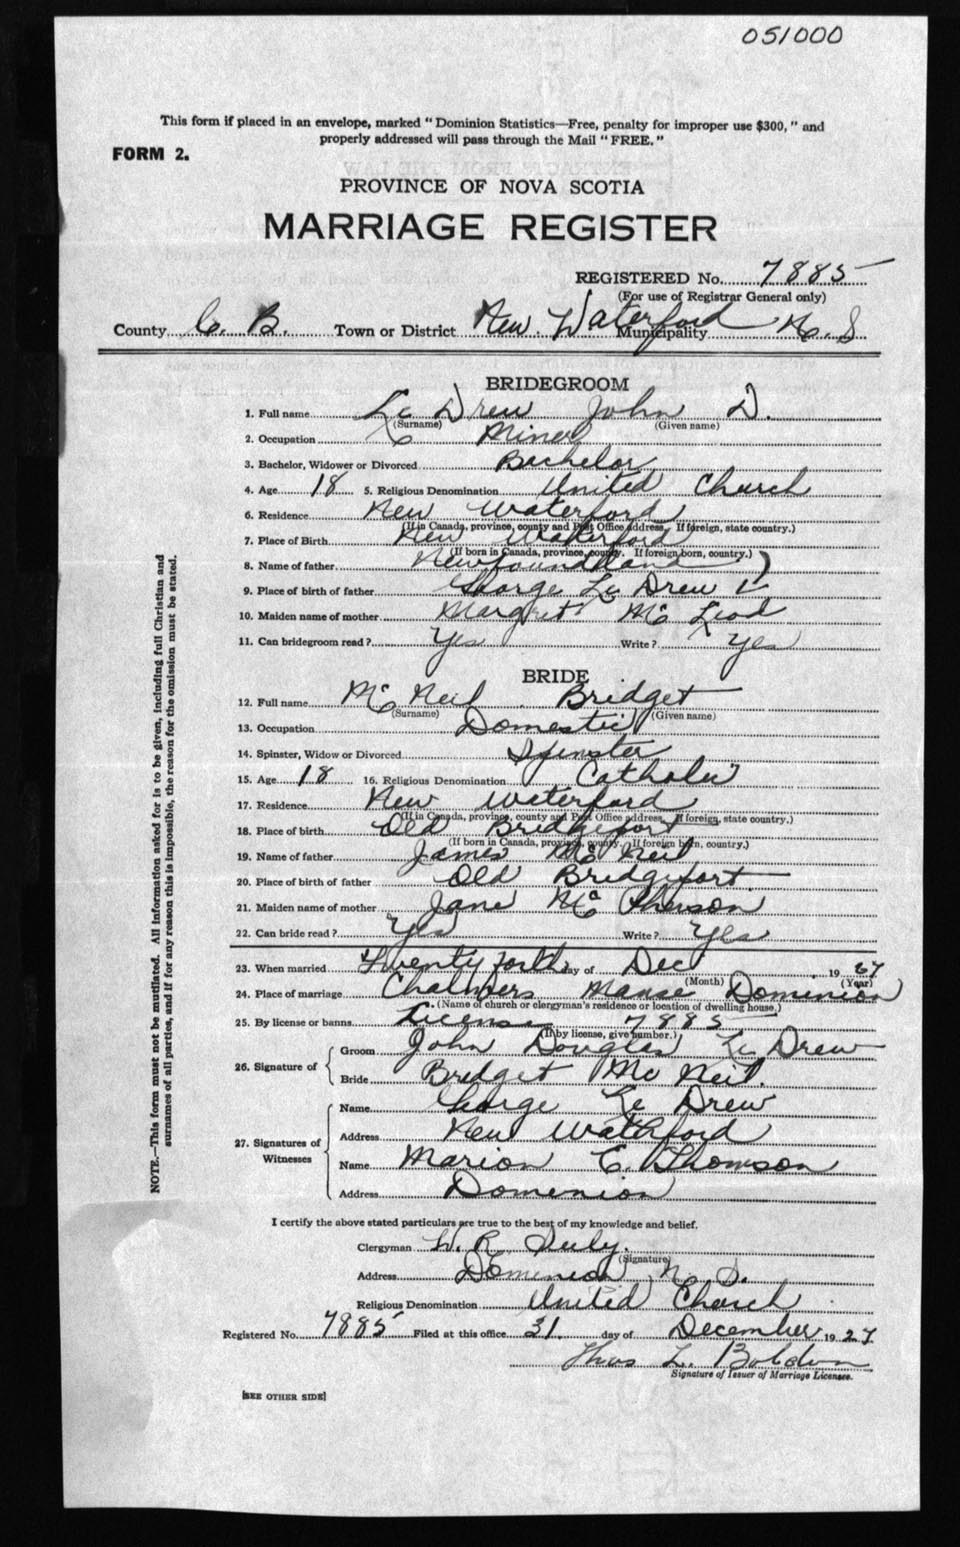 051000
This form if placed in an envelope, marked "Dominion Statistics—Free, penalty for improper use $300," and
properly addressed will pass through the Mail "FREE."
FORM 2.
PROVINCE OF NOVA SCOTIA
MARRIAGE REGISTER
REGISTERED No. 7885
(For use of Registrar General only)
County C. B. Town or District New Waterford Municipality N. S
BRIDEGROOM
1. Full name Le Drew John D.
(Surname) (Given name)
2. Occupation Miner
3. Bachelor, Widower or Divorced Bachelor
4. Age 18 5. Religious Denomination United Church
6. Residence New Waterford
(If in Canada, province, county and Post Office address. If foreign, state country.)
7. Place of Birth New Waterford
(If born in Canada, province, county. If foreign born, country.)
8. Name of father Newfoundland )
9. Place of birth of father George Le Drew
10. Maiden name of mother Margret Mc Leod
11. Can bridegroom read? Yes Write? Yes
BRIDE
12. Full name Mc Neil Bridget
(Surname) (Given name)
13. Occupation Domestic
14. Spinster, Widow or Divorced Spinster
15. Age 18 16. Religious Denomination Catholic
17. Residence New Waterford
(If in Canada, province, county and Post Office address. If foreign, state country.)
18. Place of birth Old Bridgeport
(If born in Canada, province, county. If foreign born, country.)
19. Name of father James Mc Neil
20. Place of birth of father Old Bridgeport
21. Maiden name of mother Jane Mc Pherson
22. Can bride read? Yes Write? Yes
23. When married Twenty forth day of Dec 19 27
(Month) (Year)
24. Place of marriage Chalmers Manse Dominion
(Name of church or clergyman's residence or location of dwelling house.)
25. By license or banns License 7885
(If by license, give number.)
26. Signature of Groom John Douglas Le Drew
Bride Bridget Mc Neil.
27. Signatures of Witnesses Name George Le Drew
Address New Waterford
Name Marion E. Thomson
Address Dominion
I certify the above stated particulars are true to the best of my knowledge and belief.
Clergyman W. R.
(Signature)
Address Dominion N. S.
Religious Denomination United Church
Registered No. 7885 Filed at this office 31 day of December 19 27
Thos L.
Signature of Issuer of Marriage Licenses.
[SEE OTHER SIDE]
NOTE.—This form must not be mutilated. All information asked for is to be given, including full Christian and
surnames of all parties, and if for any reason this is impossible, the reason for the omission must be stated.